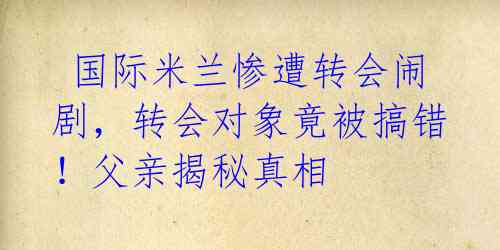 国际米兰惨遭转会闹
剧，转会对象竟被搞错
！父亲揭秘真相